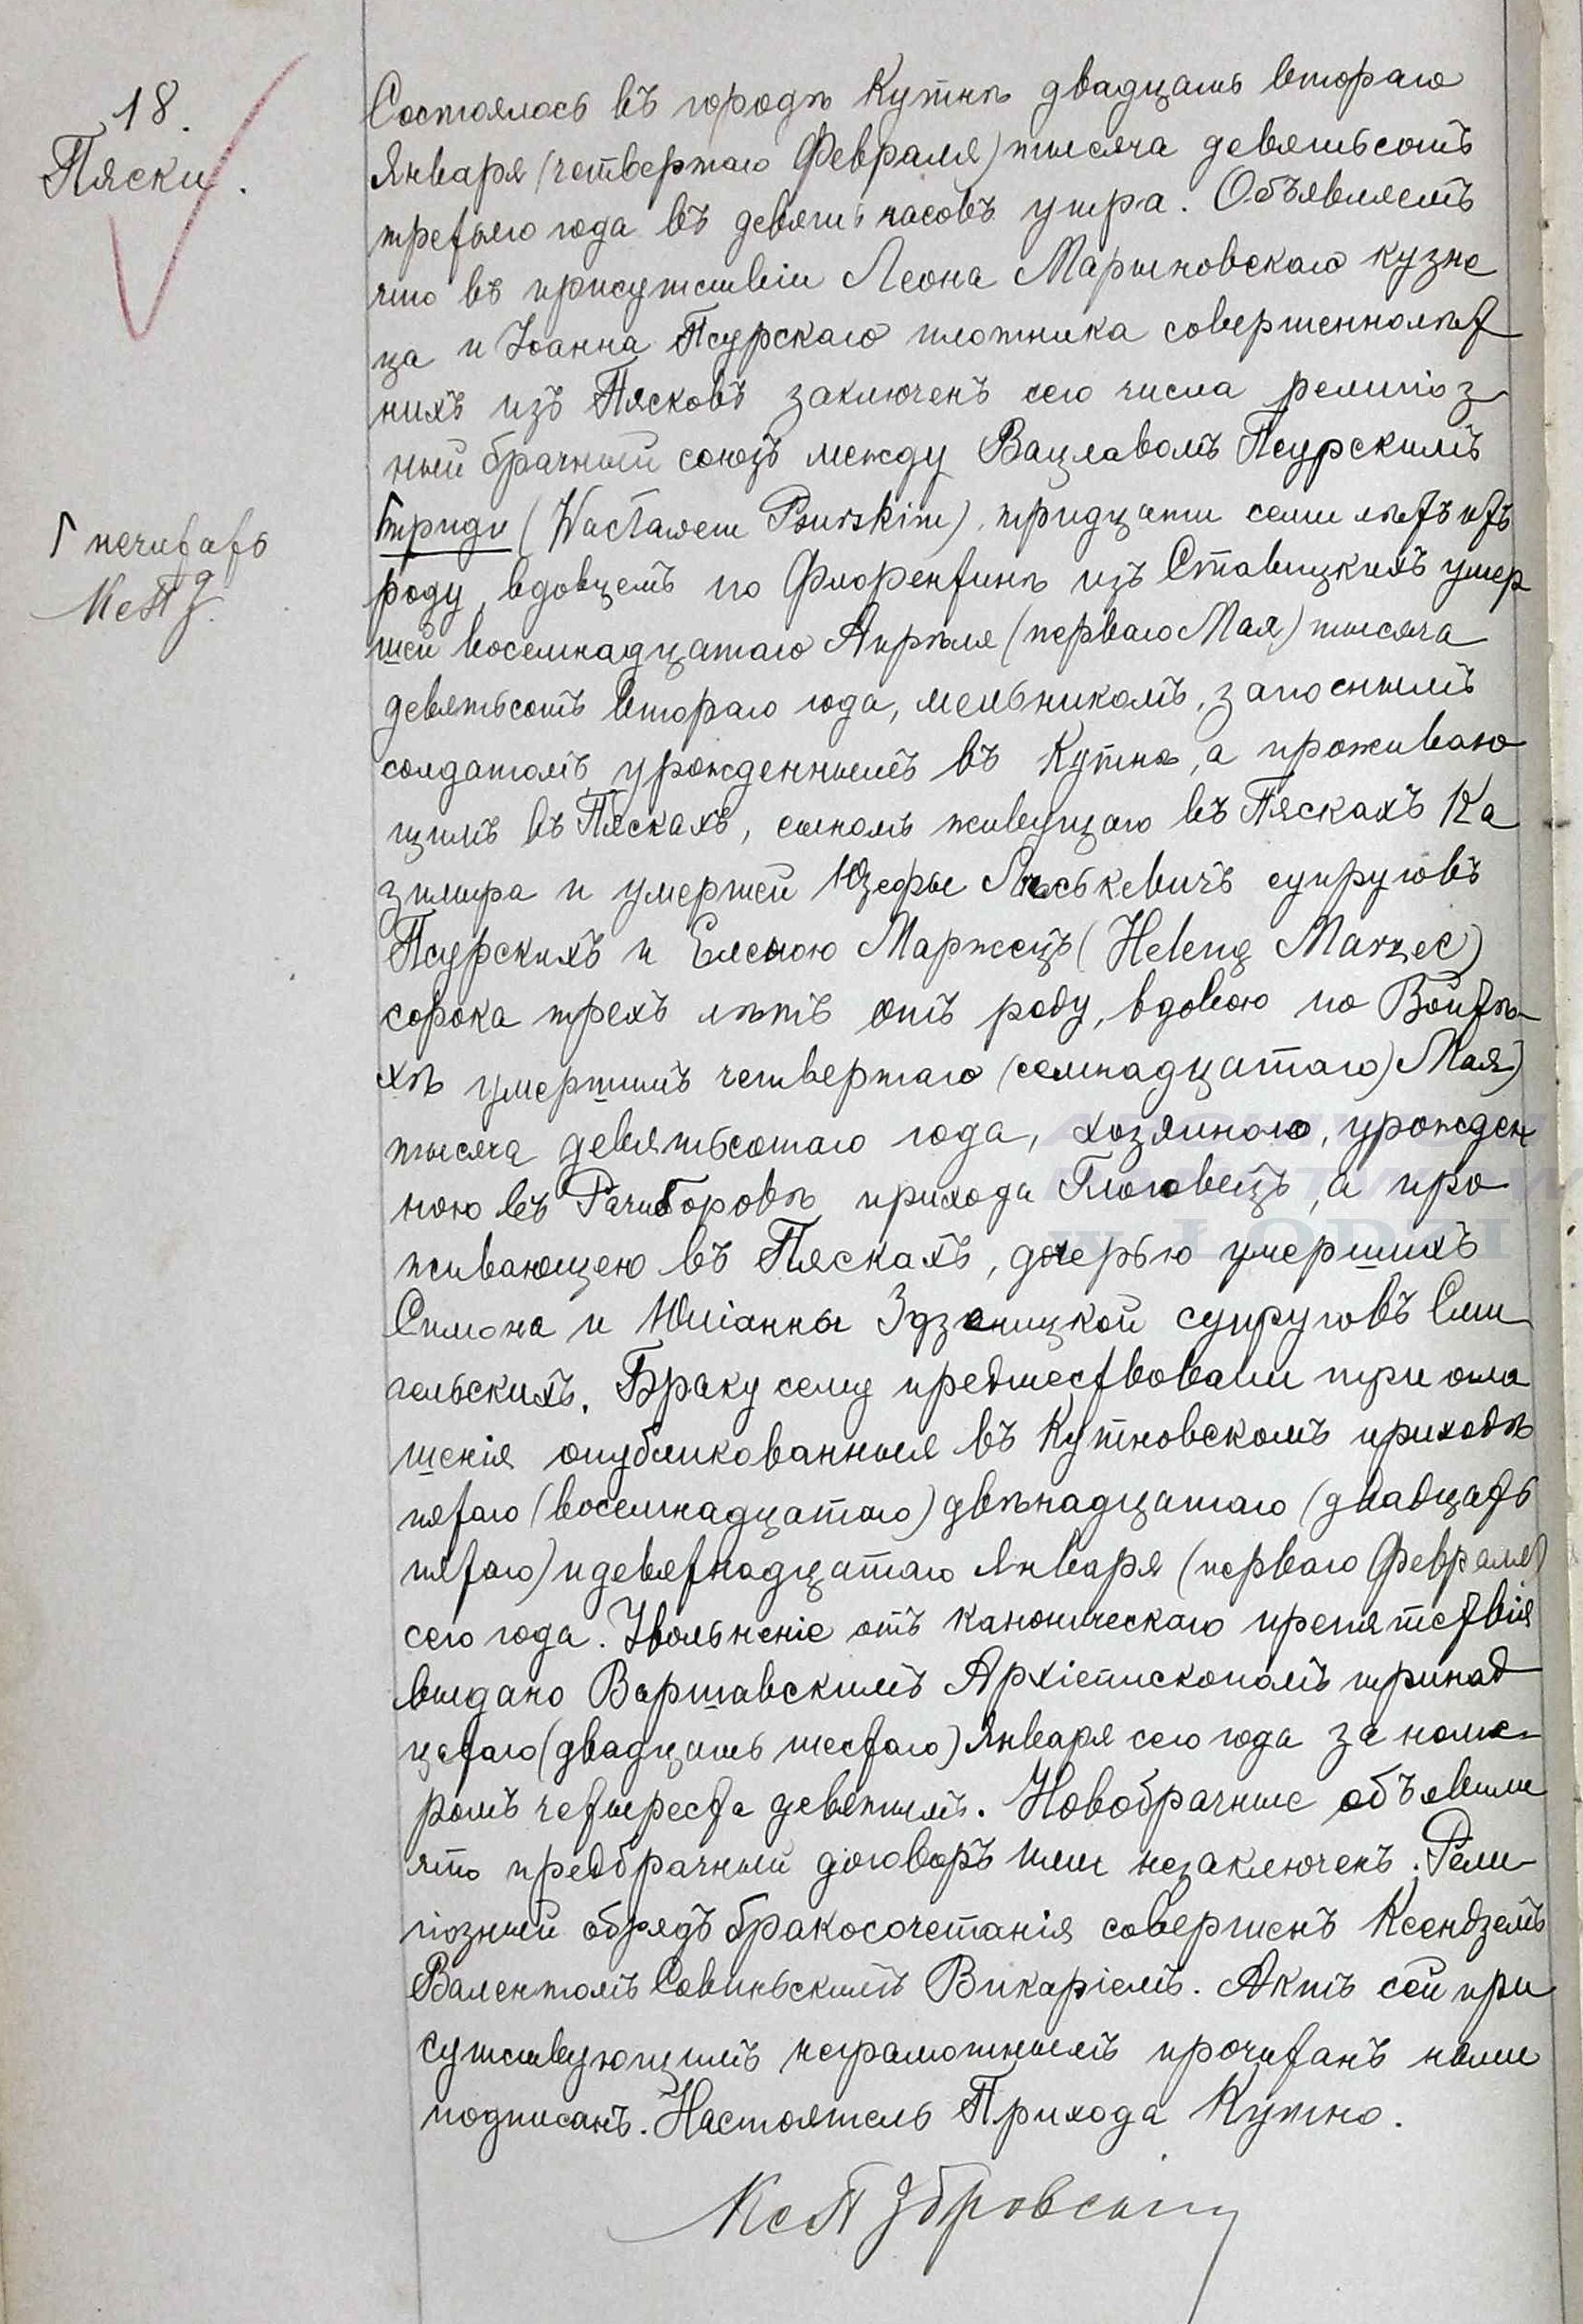 18.
Пяски.
Состоялось въ городѣ Кутнѣ двадцать втораго
Января (четвертаго Февраля) тысяча девятьсотъ
третьяго года въ девять часовъ утра. Объявляемъ
что въ присутствіи Леона Мартыновскаго кузне
ца и Іоанна Псурскаго плотника совершеннолѣт
нихъ изъ Пясковъ заключенъ сего числа религіоз
ный брачный союзъ между Вацлавомъ Псурскимъ
Г нечитать
триди (Wacławem Psurskim), тридцати семи лѣтъ отъ
роду, вдовцемъ по Флорентинѣ изъ Ставицкихъ умер
шей восемнадцатаго Апрѣля (перваго Мая) тысяча
девятьсотъ втораго года, мельникомъ, запаснымъ
солдатомъ, урожденнымъ въ Кутнѣ, а проживаю
щимъ въ Пяскахъ, сыномъ живущаго въ Пяскахъ Ка
зимира и умершей Юзефы супруговъ
Псурскихъ и Еленою Маржецъ (Heleną Marzec)
сорока трехъ лѣтъ отъ роду, вдовою по Войтѣ-
хѣ умершимъ четвертаго (семнадцатаго) Мая)
тысяча девятьсотаго года, хозяиною, урожден
ною въ Рациборовѣ прихода Глоговецъ, а про
живающею въ Пяскахъ, дочерью умершихъ
Симона и Юліанны Здзеницкой супруговъ Сми
гельскихъ. Браку сему предшествовали три огла
шенія опубликованныя въ Кутновскомъ приходѣ
пятаго (восемнадцатаго) двѣнадцатаго (двадцать
пятаго) и девятнадцатаго Января (перваго Февраля)
сего года. Увольненіе отъ каноническаго препятствія
выдано Варшавскимъ Архіепископомъ тринад
цатаго (двадцать шестаго) Января сего года за номе-
ромъ четыреста девятымъ. Новобрачные объявили
что предбрачный договоръ ими незаключенъ. Рели-
гіозный обрядъ бракосочетанія совершенъ Ксендземъ
Валентомъ Савиньскимъ Викаріемъ. Актъ сей при
сутствующимъ неграмотнымъ прочитанъ нами
подписанъ. Настоятель Прихода Кутно.
Кс П Збровскій